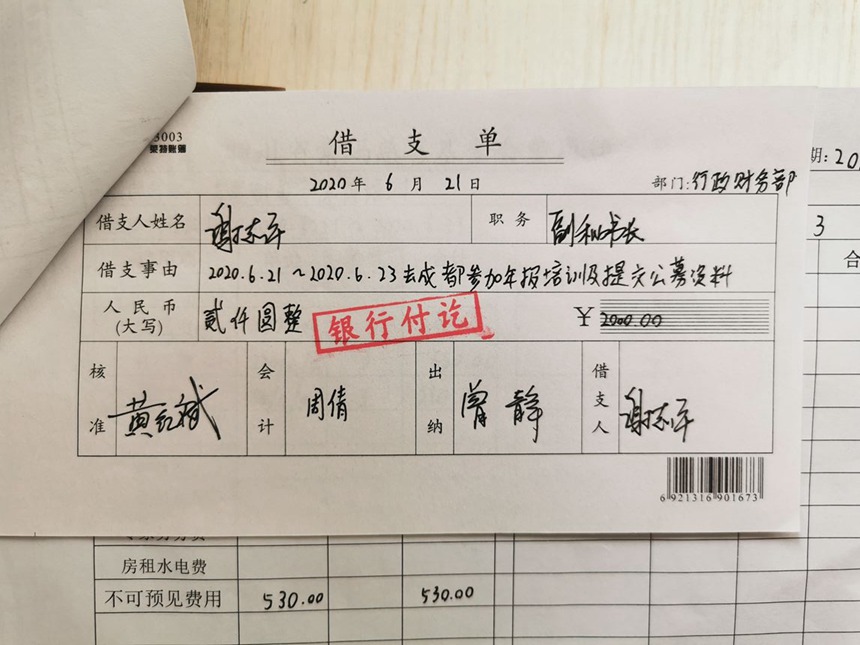 3003
莱特账簿
借支单
2020年6月21日
部门:行政财务部
期: 20
借支人姓名 谢志平 职务 副秘书长
3
借支事由 2020.6.21~2020.6.23去成都参加年报培训及提交公募资料
合
人民币(大写) 贰仟圆整 ¥ 2000.00
银行付讫
核准 黄红斌 会计 周倩 出纳 曾静 借支人 谢志平
6 921316 901673
房租水电费
不可预见费用 530.00 530.00